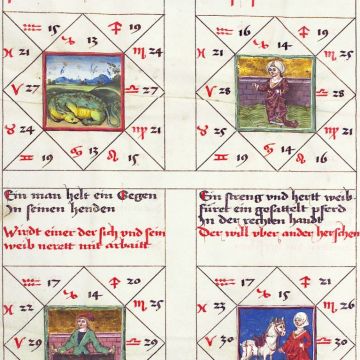 ♒ 15 ♐ 19
♑ 13
♓ 21 ♏ 24
♈ 27 27 ♎
♉ 24 ♍ 21
♊ 19 13 ♋ ♌ 15
♒ 16 ♐ 19
♑ 14
♓ 21 ♏ 25
♈ 28 28 ♎
♉ 25 ♍ 21
♊ 19 14 ♋ ♌ 16
Ein man helt ein Gegen
In seinen henden
Wirdt einer der sich vnd sein
weib nerett mit arbaitt
Ein streng vnd hertt weib
füret ein gesattelt pferd
In der rechten handt
Der will vber ander herschen
♒ 17 ♐ 20
♑ 14
♓ 22 ♏ 25
♈ 29 29 ♎
♒ 17 ♐ 20
♑ 15
♓ 23 ♏ 26
♈ 30 30 ♎